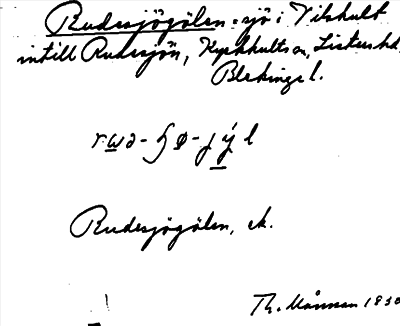 Rudesjögölen: sjö i Vilshult
intill Rudesjön, Kyrkhults sn, Listers hd,
Blekinge l.
Rudesjögölen, ek.
Th. Månsson